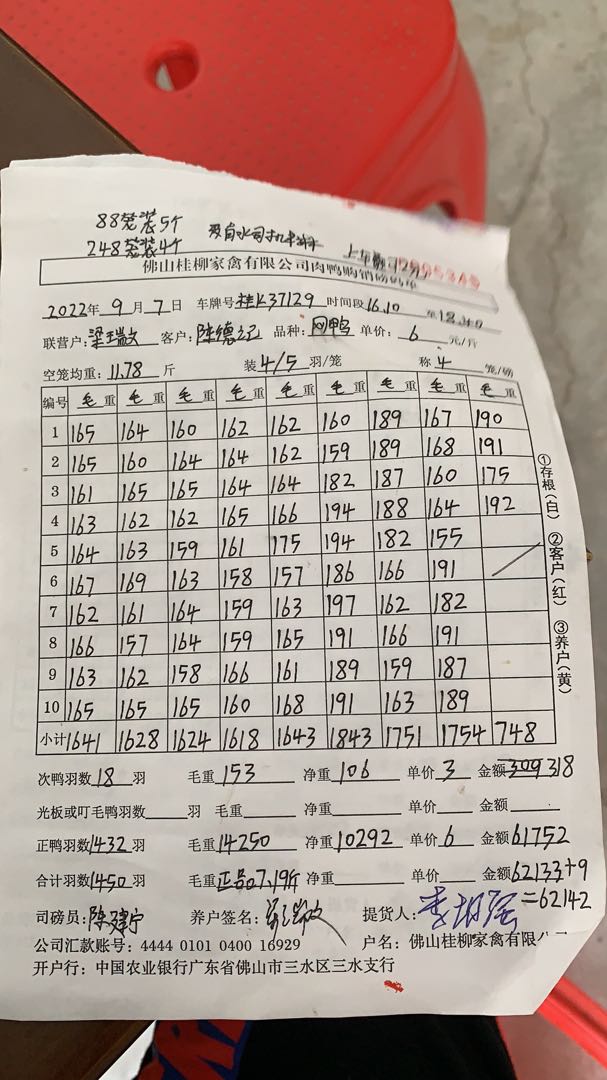 88笼装5个
248笼装4个
佛山桂柳家禽有限公司肉鸭购销磅码单
2022年 9 月 7 日 车牌号桂K37129 时间段16.10 至18:40
联营户:梁瑞文 客户:陈德记 品种: 网鸭 单价: 6 元/斤
空笼均重: 11.78 斤 装 4/5 羽/笼 称 4 笼/磅
编号 毛 重 毛 重 毛 重 毛 重 毛 重 毛 重 毛 重 毛 重 毛 重
1 165 164 160 162 162 160 189 167 190
2 165 160 164 164 162 159 189 168 191
3 161 165 165 164 164 182 187 160 175
4 163 162 162 165 166 194 188 164 192
5 164 163 159 161 175 194 182 155
6 167 169 163 158 157 186 166 191
7 162 161 164 159 163 197 162 182
8 166 157 164 159 165 191 166 191
9 163 162 158 166 161 189 159 187
10 165 165 165 160 168 191 163 189
小计 1641 1628 1624 1618 1643 1843 1751 1754 748
①存根(白) ②客户(红) ③养户(黄)
次鸭羽数 18 羽 毛重 153 净重 106 单价 3 金额 309 318
光板或叮毛鸭羽数 羽 毛重 净重 单价 金额
正鸭羽数 1432 羽 毛重 14250 净重 10292 单价 6 金额 61752
合计羽数 1450 羽 毛重 正品07.19斤 净重 单价 金额 62133+9
=62142
司磅员: 陈建宁 养户签名: 提货人:
公司汇款账号: 4444 0101 0400 16929 户名: 佛山桂柳家禽有限公
开户行: 中国农业银行广东省佛山市三水区三水支行